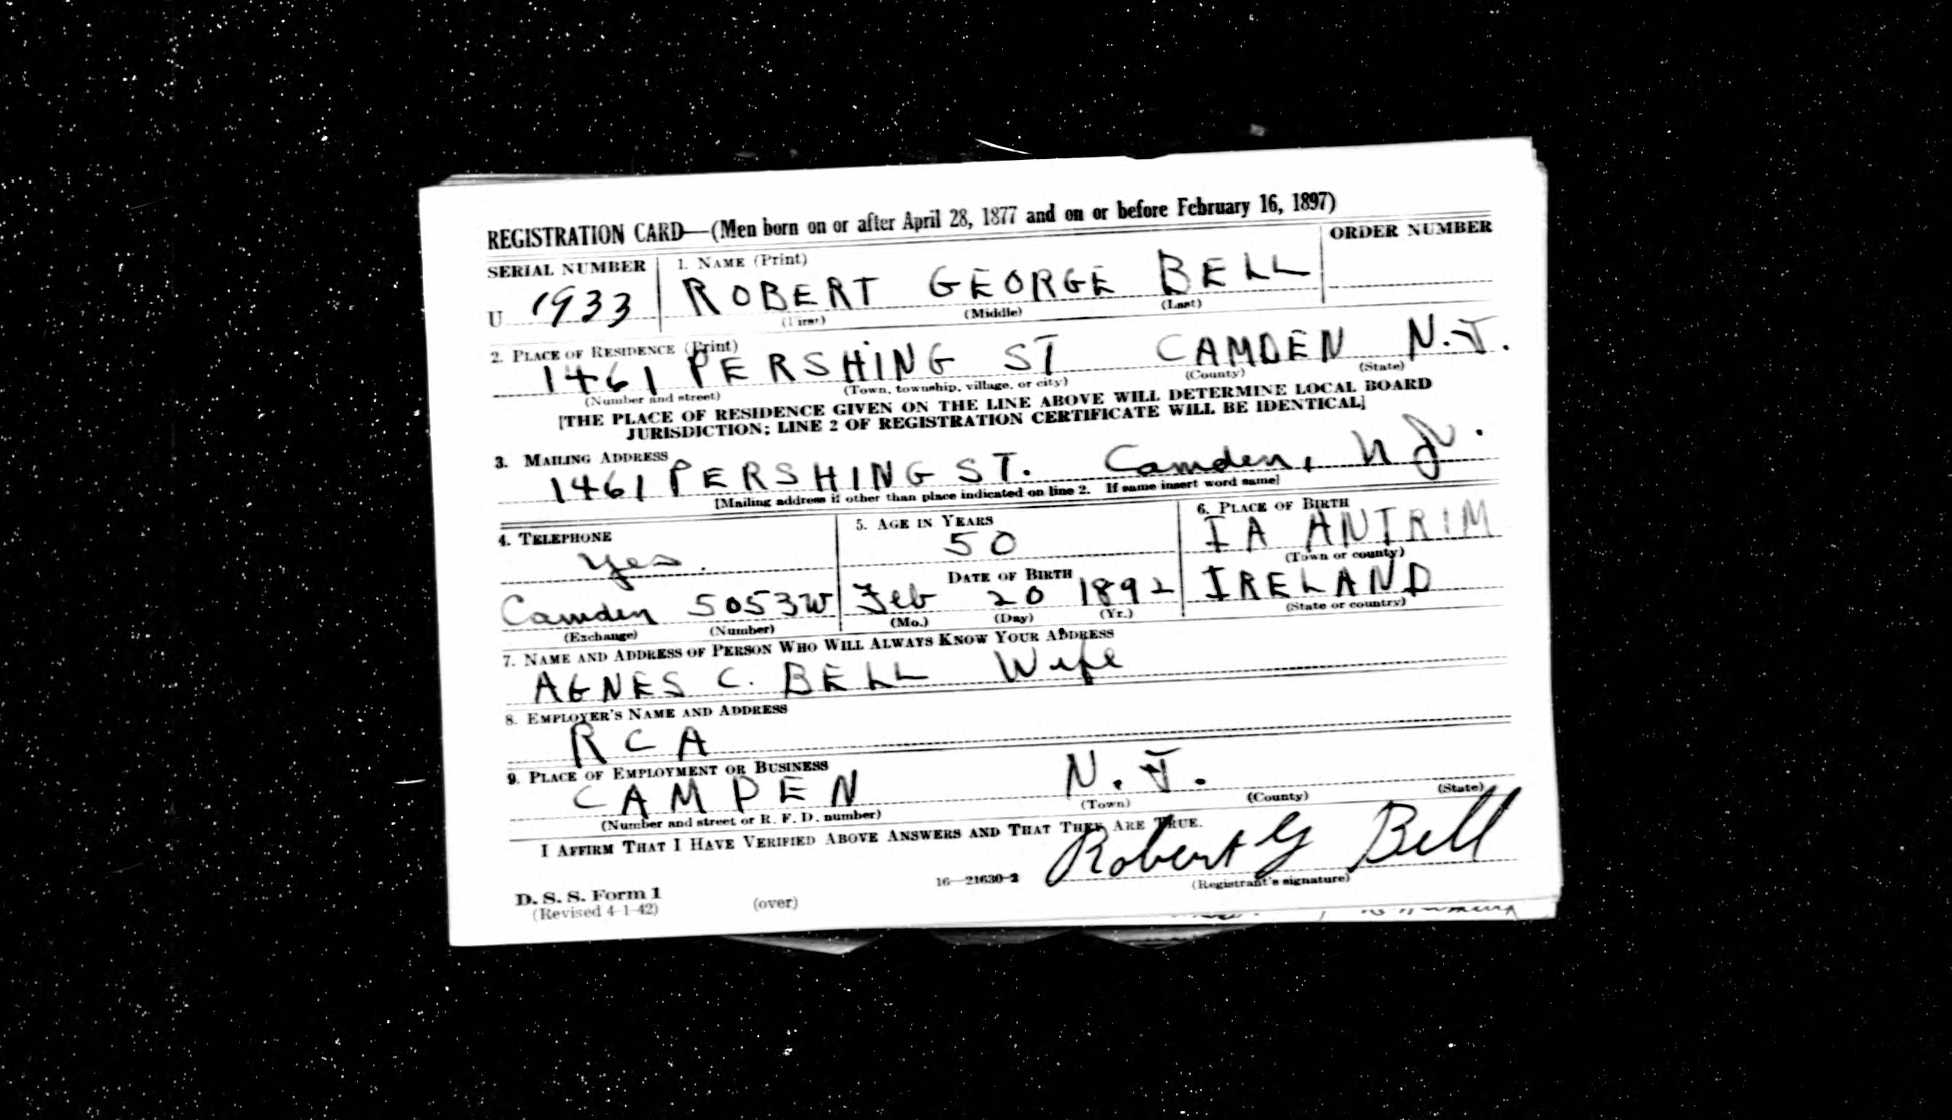 REGISTRATION CARD—(Men born on or after April 28, 1877 and on or before February 16, 1897)
SERIAL NUMBER 1. NAME (Print) ORDER NUMBER
U 1933 ROBERT GEORGE BELL
(First) (Middle) (Last)
2. PLACE OF RESIDENCE (Print)
1461 PERSHING ST CAMDEN N.J.
(Number and street) (Town, township, village, or city) (County) (State)
[THE PLACE OF RESIDENCE GIVEN ON THE LINE ABOVE WILL DETERMINE LOCAL BOARD
JURISDICTION; LINE 2 OF REGISTRATION CERTIFICATE WILL BE IDENTICAL]
3. MAILING ADDRESS
1461 PERSHING ST. Camden, N J.
[Mailing address if other than place indicated on line 2. If same insert word same]
4. TELEPHONE 5. AGE IN YEARS 6. PLACE OF BIRTH
Yes. 50 ANTRIM
(Town or county)
DATE OF BIRTH
Camden 5053W Feb 20 1892 IRELAND
(Exchange) (Number) (Mo.) (Day) (Yr.) (State or country)
7. NAME AND ADDRESS OF PERSON WHO WILL ALWAYS KNOW YOUR ADDRESS
AGNES C. BELL Wife
8. EMPLOYER'S NAME AND ADDRESS
RCA
9. PLACE OF EMPLOYMENT OR BUSINESS
CAMDEN N.J.
(Number and street or R. F. D. number) (Town) (County) (State)
I AFFIRM THAT I HAVE VERIFIED ABOVE ANSWERS AND THAT THEY ARE TRUE.
Robert G Bell
D. S. S. Form 1 16—21630-2 (Registrant's signature)
(Revised 4-1-42) (over)